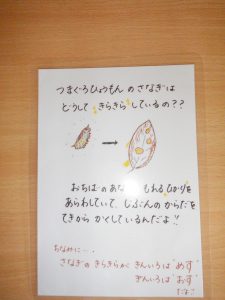 つまぐろひょうもん の さなぎは
どうして きらきら しているの??
おちばの あな もれる ひかりを
あらわしていて、じぶんの からだを
てきから かくしているんだよ!!
ちなみに…
さなぎの きらきらが きんいろは "めす"
ぎんいろは "おす"
だよ!